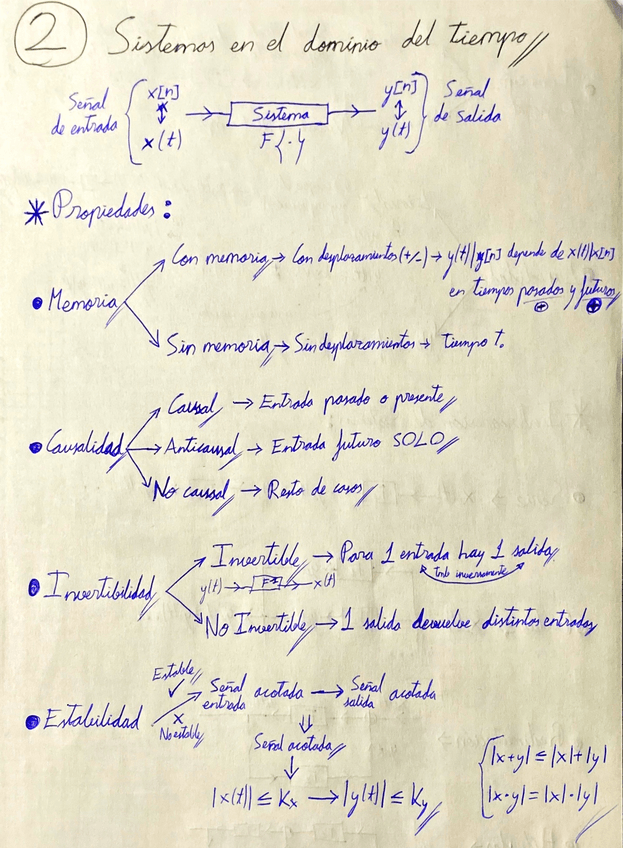 2 Sistemas en el dominio del tiempo
Señal de entrada { x[n] ↕ x(t) → Sistema F{·} → y[n] ↕ y(t) } Señal de salida
* Propiedades:
Con memoria → Con desplazamientos (+/-) → y(t)||y[n] depende de x(t)||x[n]
en tiempos pasados y futuros
⊖ ⊕
• Memoria
Sin memoria → Sin desplazamientos → Tiempo t.
Causal → Entrada pasado o presente
• Causalidad → Anticausal → Entrada futuro SOLO
No causal → Resto de casos
Invertible → Para 1 entrada hay 1 salida
tmb inversamente
y(t) → F⁻¹ → x(t)
• Invertibilidad
No Invertible → 1 salida devuelve distintas entradas
Estable ✓
Señal entrada acotada → Señal salida acotada
• Estabilidad
x No estable
⇓
Señal acotada
↓
|x(t)| ≤ Kx → |y(t)| ≤ Ky
{ |x+y| ≤ |x|+|y|
|x·y| = |x|·|y|